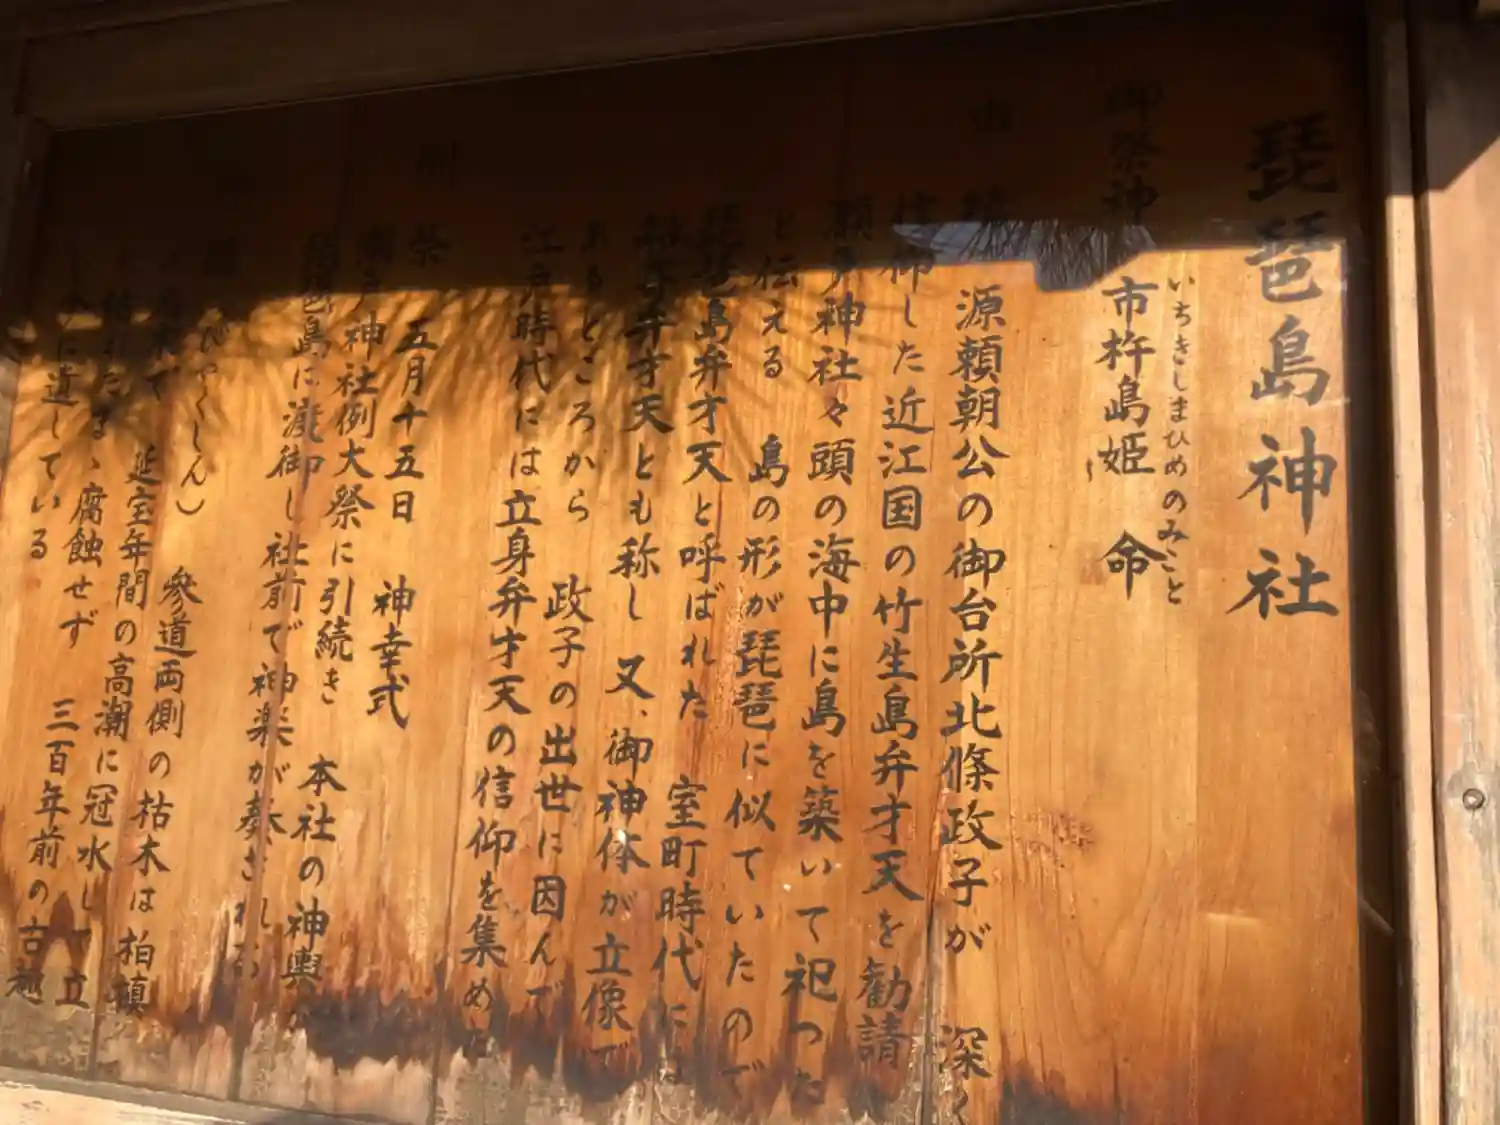 琵琶島神社
御祭神 市杵島姫 命
いちきしまひめのみこと
由
源頼朝公の御台所北條政子が 深く
信仰した近江国の竹生島弁才天を勧請
瀬戸神社々頭の海中に島を築いて祀った
と伝える 島の形が琵琶に似ていたので
琵琶島弁才天と呼ばれた 室町時代には
弁才天とも称し又、御神体が立像で
あるところから 政子の出世に因んで
江戸時代には立身弁才天の信仰を集めた
例
祭 五月十五日 神幸式
瀬戸神社例大祭に引続き 本社の神輿が
琵琶島に渡御し社前で神楽が奏される
びゃくしん） 参道両側の枯木は柏槇
で 延宝年間の高潮に冠水し 立
枯れたが、腐蝕せず 三百年前の古
に遺している